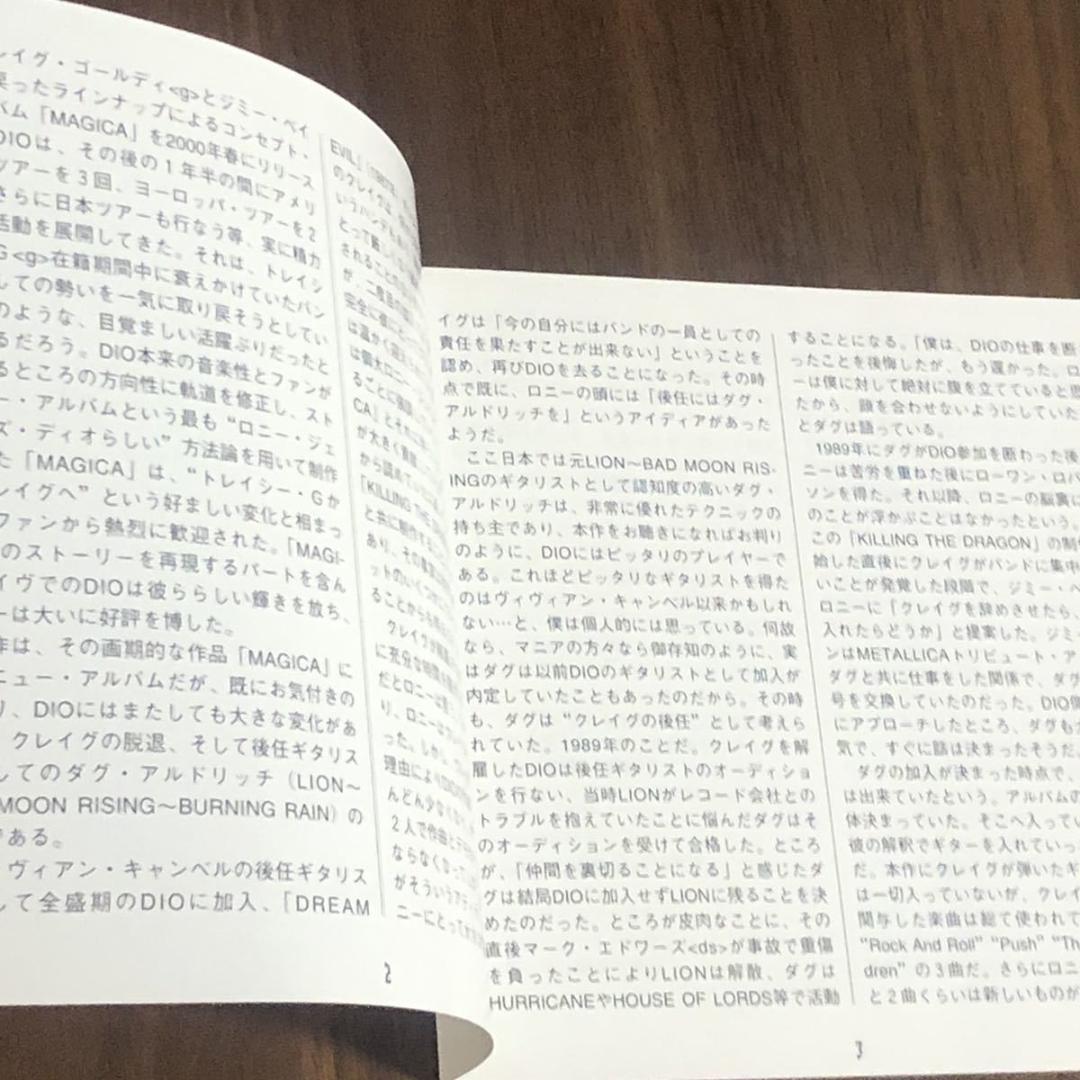 レイグ・ゴールディ<g>とジミー・ベイ
戻ったラインナップによるコンセプト・
バム「MAGICA」を2000年春にリリース
DIOは、その後の1年半の間にアメリ
ツアーを3回、ヨーロッパ・ツアーを2
さらに日本ツアーも行なう等、実に精力
活動を展開してきた。それは、トレイシ
G<g>在籍期間中に衰えかけていたバン
しての勢いを一気に取り戻そうとしてい
のような、目覚ましい活躍ぶりだったと
るだろう。DIO本来の音楽性とファンが
るところの方向性に軌道を修正し、スト
ー・アルバムという最も“ロニー・ジェ
ズ・ディオらしい”方法論を用いて制作
た「MAGICA」は、“トレイシー・Gか
レイグへ”という好ましい変化と相まっ
ファンから熱烈に歓迎された。「MAGI-
のストーリーを再現するパートを含ん
イヴでのDIOは彼ららしい輝きを放ち、
ーは大いに好評を博した。
作は、その画期的な作品「MAGICA」に
ニュー・アルバムだが、既にお気付きの
り、DIOにはまたしても大きな変化があ
クレイグの脱退、そして後任ギタリス
してのダグ・アルドリッチ（LION～
MOON RISING～BURNING RAIN）の
である。
ヴィアン・キャンベルの後任ギタリス
して全盛期のDIOに加入、「DREAM
2
EVIL」
のクレイグは
いうハン
とって
される
が、二度目の
完全に
は温かく
は
ること
CA」と
が大きく
から
「KILLING THE
と共に
あり、その
ットのいくつ
ることから
クレイグが
に充分な
だとロニーは
り、ロニーは
った。しかし、
理由により
んどん少なくな
2人で作曲と
ならなくなっ
がそういう
ニーにとって
イグは「今の自分にはバンドの一員としての
責任を果たすことが出来ない」ということを
認め、再びDIOを去ることになった。その時
点で既に、ロニーの頭には「後任にはダグ・
アルドリッチを」というアイディアがあった
ようだ。
ここ日本では元LION～BAD MOON RIS-
INGのギタリストとして認知度の高いダグ・
アルドリッチは、非常に優れたテクニックの
持ち主であり、本作をお聴きになればお判り
のように、DIOにはピッタリのプレイヤーで
ある。これほどピッタリなギタリストを得た
のはヴィヴィアン・キャンベル以来かもしれ
ない…と、僕は個人的には思っている。何故
なら、マニアの方々なら御存知のように、実
はダグは以前DIOのギタリストとして加入が
内定していたこともあったのだから。その時
も、ダグは“クレイグの後任”として考えら
れていた。1989年のことだ。クレイグを解
雇したDIOは後任ギタリストのオーディショ
ンを行ない、当時LIONがレコード会社との
トラブルを抱えていたことに悩んだダグはそ
のオーディションを受けて合格した。ところ
が、「仲間を裏切ることになる」と感じたダ
グは結局DIOに加入せずLIONに残ることを決
めたのだった。ところが皮肉なことに、その
直後マーク・エドワーズ<ds>が事故で重傷
を負ったことによりLIONは解散、ダグは
HURRICANEやHOUSE OF LORDS等で活動
することになる。「僕は、DIOの仕事を断
ったことを後悔したが、もう遅かった。ロ
ーは僕に対して絶対に腹を立てていると思
たから、顔を合わせないようにしていた
とダグは語っている。
1989年にダグがDIO参加を断わった後
ニーは苦労を重ねた後にローワン・ロバ
ソンを得た。それ以降、ロニーの脳裏に
のことが浮かぶことはなかったという。
この「KILLING THE DRAGON」の制作
始した直後にクレイグがバンドに集中
いことが発覚した段階で、ジミー・ベ
ロニーに「クレイグを辞めさせたら、
入れたらどうか」と提案した。ジミ
ンはMETALLICAトリビュート・ア
ダグと共に仕事をした関係で、ダグ
号を交換していたのだった。DIO側
にアプローチしたところ、ダグも
気で、すぐに話は決まったそうだ
ダグの加入が決まった時点で、
は出来ていたという。アルバムの
体決まっていた。そこへ入ってい
彼の解釈でギターを入れていっ
だ。本作にクレイグが弾いたギ
は一切入っていないが、クレイ
関与した楽曲は総て使われて
“Rock And Roll” “Push” “Th
dren” の3曲だ。さらにロニ
と2曲くらいは新しいものが
3